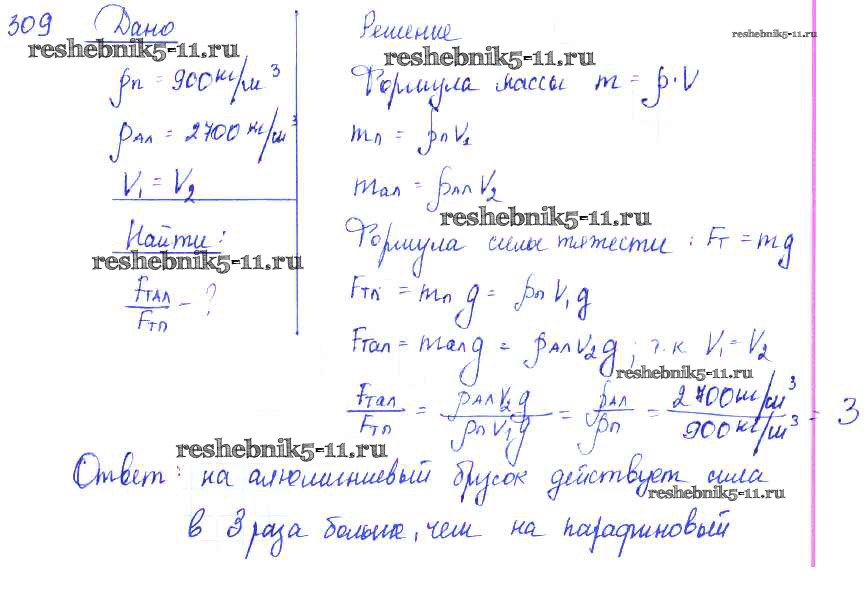 309 Дано
reshebnik5-11.ru
ρп = 900 кг/м³
ρАл = 2700 кг/м³
V₁ = V₂
Найти:
reshebnik5-11.ru
FТАЛ/FТП - ?
Решение
reshebnik5-11.ru
reshebnik5-11.ru
Формула массы m = ρ·V
mп = ρп V₁
mал = ρАЛ V₂
reshebnik5-11.ru
Формула силы тяжести: FТ = mg
FТП = mп g = ρп V₁ g
FТал = mал g = ρАЛ V₂ g; т.к. V₁ = V₂
reshebnik5-11.ru
FТАЛ/FТП = ρАЛ V₂ g/ρп V₁ g = ρАЛ/ρп = 2700 кг/м³/900 кг/м³ = 3
reshebnik5-11.ru
Ответ: на алюминиевый брусок действует сила
reshebnik5-11.ru
в 3 раза больше, чем на парафиновый